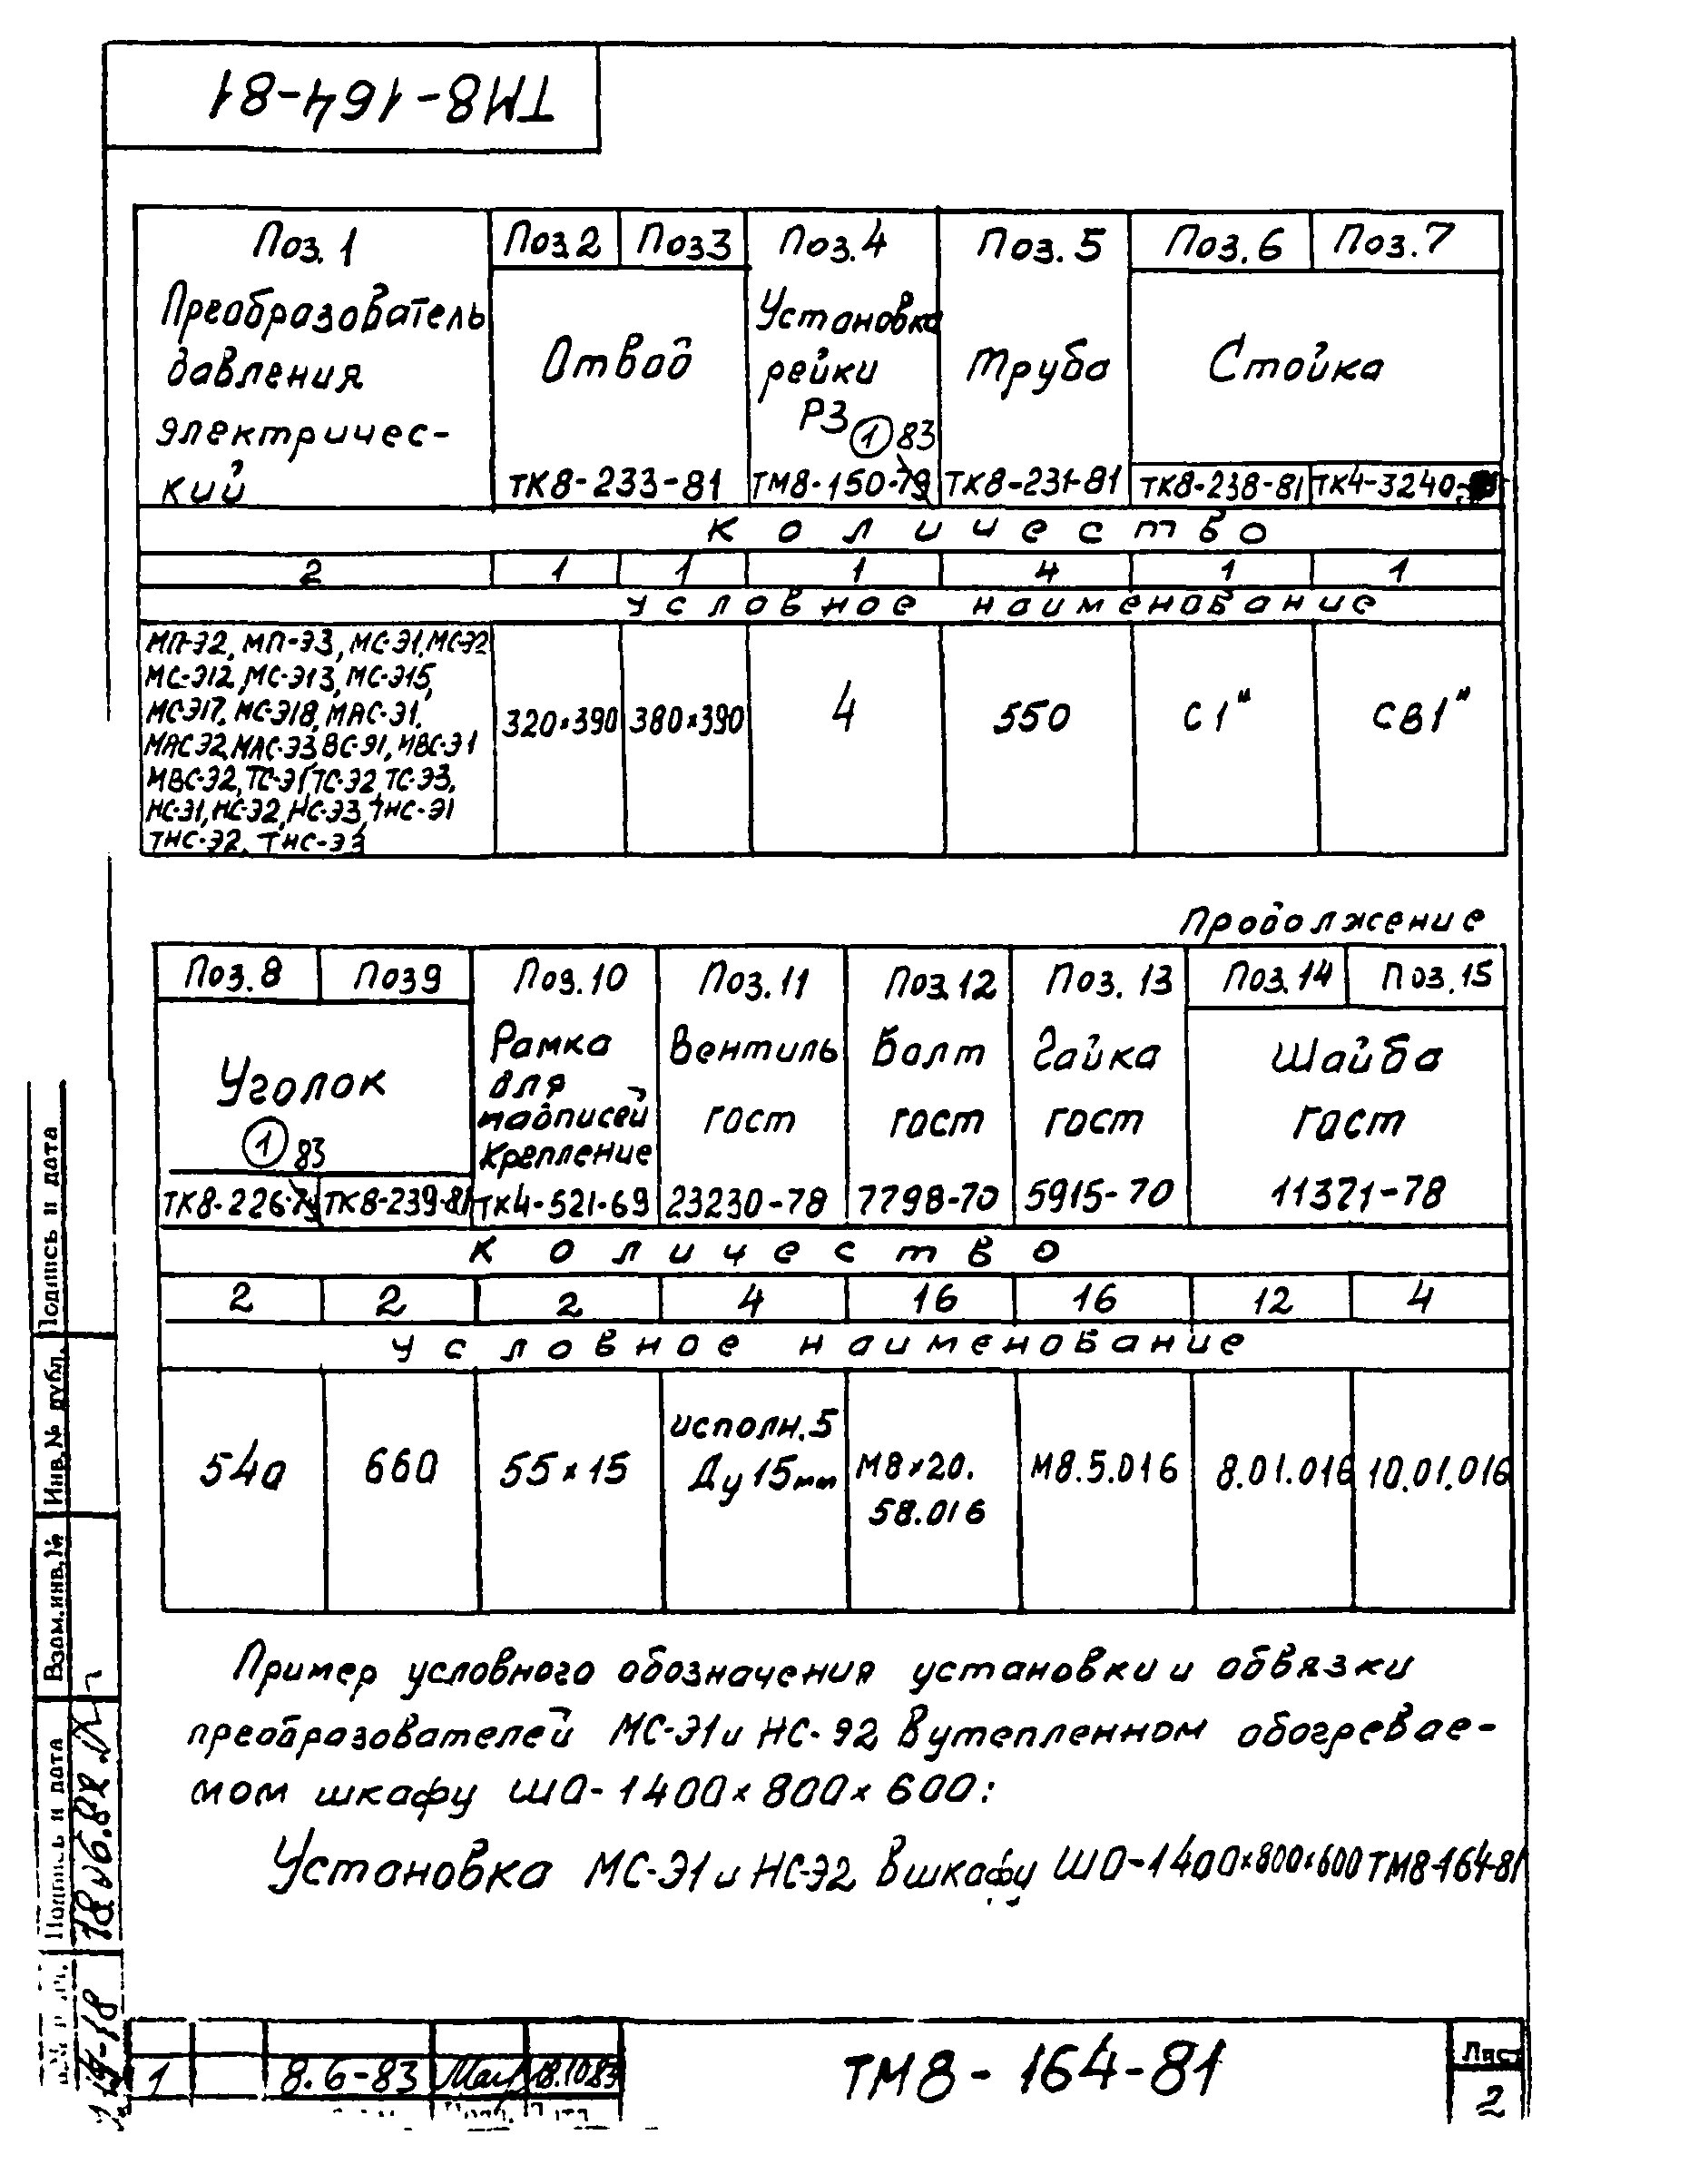 ТМ8-164-81
Поз. 1 Поз2 Поз3 Поз.4 Поз. 5 Поз. 6 Поз. 7
Преобразователь
давления
электричес-
кий
Отвод
ТК8-233-81
Установка
рейки
РЗ
1 83
ТМ8-150-79
Труба
ТК8-231-81
Стойка
ТК8-238-81 ТК4-3240-
Количество
2 1 1 1 4 1 1
Условное наименование
МП-Э2, МП-Э3, МС-Э1, МС-Э2
МС-Э12, МС-Э13, МС-Э15,
МС-Э17, МС-Э18, МАС-Э1,
МАС-Э2, МАС-Э3, ВС-Э1, МВС-Э1
МВС-Э2, ТС-Э1, ТС-Э2, ТС-Э3,
НС-Э1, НС-Э2, НС-Э3, ТНС-Э1
ТНС-Э2, ТНС-Э3
320×390 380×390 4 550 С1" СВ1"
Продолжение
Поз.8 Поз9 Поз.10 Поз.11 Поз.12 Поз. 13 Поз.14 Поз.15
Уголок
1 83
ТК8-226-79 ТК8-239-81
Рамка
для
надписей
Крепление
ТК4-521-69
Вентиль
гост
23230-78
Болт
гост
7798-70
Гайка
гост
5915-70
Шайба
гост
11371-78
Количество
2 2 2 4 16 16 12 4
Условное наименование
54а 660 55×15
исполн.5
Ду 15мм
М8×20.
58.016
М8.5.016 8.01.016 10.01.016
Пример условного обозначения установки и обвязки
преобразователей МС-Э1 и НС-Э2 в утепленном обогревае-
мом шкафу ШО-1400×800×600:
Установка МС-Э1 и НС-Э2 в шкафу ШО-1400×800×600 ТМ8-164-81
Подпись и дата
Инв.№ дубл.
Взам.инв.№
Подпись и дата
1 8.6-83 18.10.83
ТМ8-164-81
Лист
2